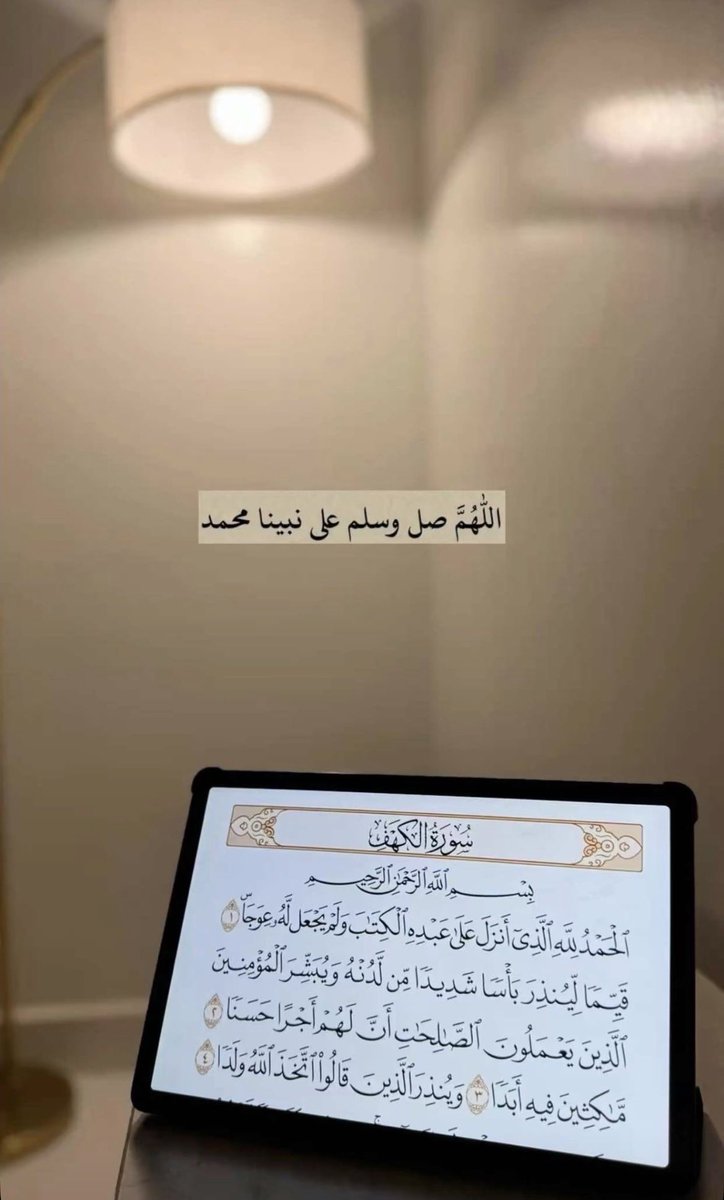 اللّٰهُمَّ صل وسلم على نبينا محمد
سُورَةُ الكَهْفِ
بِسْمِ اللَّهِ الرَّحْمَٰنِ الرَّحِيمِ
الْحَمْدُ لِلَّهِ الَّذِي أَنزَلَ عَلَىٰ عَبْدِهِ الْكِتَٰبَ وَلَمْ يَجْعَل لَّهُۥ عِوَجَاۜ ١
قَيِّمًا لِّيُنذِرَ بَأْسًا شَدِيدًا مِّن لَّدُنْهُ وَيُبَشِّرَ الْمُؤْمِنِينَ
الَّذِينَ يَعْمَلُونَ الصَّٰلِحَٰتِ أَنَّ لَهُمْ أَجْرًا حَسَنًا ٢
مَّٰكِثِينَ فِيهِ أَبَدًا ٣ وَيُنذِرَ الَّذِينَ قَالُوا۟ اتَّخَذَ اللَّهُ وَلَدًا ٤